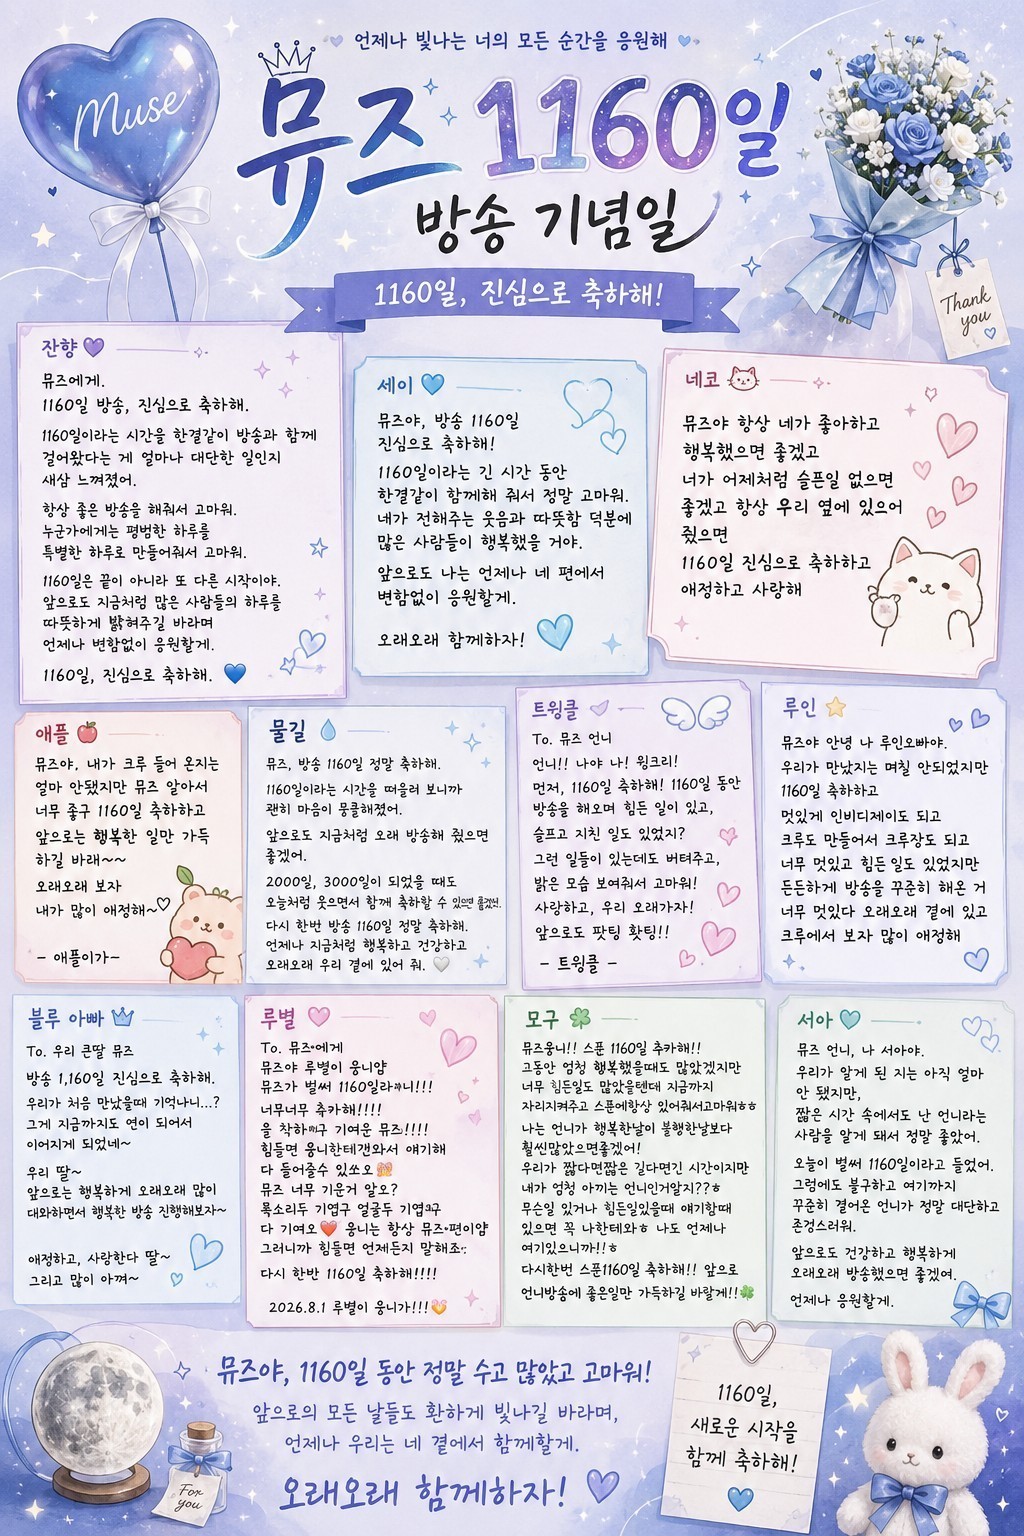 언제나 빛나는 너의 모든 순간을 응원해
Muse
뮤즈 1160일
방송 기념일
1160일, 진심으로 축하해!
Thank you
잔향
뮤즈에게.
1160일 방송, 진심으로 축하해.
1160일이라는 시간을 한결같이 방송과 함께
걸어왔다는 게 얼마나 대단한 일인지
새삼 느껴졌어.
항상 좋은 방송을 해줘서 고마워.
누군가에게는 평범한 하루를
특별한 하루로 만들어줘서 고마워.
1160일은 끝이 아니라 또 다른 시작이야.
앞으로도 지금처럼 많은 사람들의 하루를
따뜻하게 밝혀주길 바라며
언제나 변함없이 응원할게.
1160일, 진심으로 축하해.
세이
뮤즈야, 방송 1160일
진심으로 축하해!
1160일이라는 긴 시간 동안
한결같이 함께해 줘서 정말 고마워.
네가 전해주는 웃음과 따뜻함 덕분에
많은 사람들이 행복했을 거야.
앞으로도 나는 언제나 네 편에서
변함없이 응원할게.
오래오래 함께하자!
네코
뮤즈야 항상 네가 좋아하고
행복했으면 좋겠고
너가 어제처럼 슬픈일 없으면
좋겠고 항상 우리 옆에 있으어
줬으면
1160일 진심으로 축하하고
애정하고 사랑해
애플
뮤즈야, 내가 크루 들어 온지는
얼마 안됐지만 뮤즈 알아서
너무 좋구 1160일 축하하고
앞으로는 행복한 일만 가득
하길 바래~~
오래오래 보자
내가 많이 애정해~♡
- 애플이가~
물길
뮤즈, 방송 1160일 정말 축하해.
1160일이라는 시간을 떠올려 보니까
괜히 마음이 뭉클해졌어.
앞으로도 지금처럼 오래 방송해 줬으면
좋겠어.
2000일, 3000일이 되었을 때도
오늘처럼 웃으면서 함께 축하할 수
다시 한번 방송 1160일 정말 축하해.
언제나 지금처럼 행복하고 건강하고
오래오래 우리 곁에 있어 줘.
트윙클
To. 뮤즈 언니
언니!! 나야 나! 윙크리!
먼저, 1160일 축하해! 1160일 동안
방송을 해오며 힘든 일이 있고,
슬프고 지친 일도 있었지?
그런 일들이 있는데도 버텨주고,
밝은 모습 보여줘서 고마워!
사랑하고, 우리 오래가자!
앞으로도 팟팅 홧팅!!
- 트윙클 -
루인
뮤즈야 안녕 나 루인오빠야.
우리가 만났지는 며칠 안되었지만
1160일 축하하고
멋있게 인비디제이도 되고
크루도 만들어서 크루장도 되고
너무 멋있고 힘든 일도 있었지만
든든하게 방송을 꾸준히 해온 거
너무 멋있다 오래오래 곁에 있고
크루에서 보자 많이 애정해
블루 아빠
To. 우리 큰딸 뮤즈
방송 1,160일 진심으로 축하해.
우리가 처음 만났을때 기억나니...?
그게 지금까지도 연이 되어서
이어지게 되었네~
우리 딸~
앞으로는 행복하게 오래오래 많이
대화하면서 행복한 방송 진행해보자~
애정하고, 사랑한다 딸~
그리고 많이 아껴~
루별
To. 뮤즈에게
뮤즈야 루별이 웅니얌
뮤즈가 벌써
너무너무 축카해!!!!
을 기여운 뮤즈!!!!
힘들면 웅니한테갠와서 얘기해
다 들어줄수 있쏘오
뮤즈 너무 기운거 알오?
목소리두 기엽구 얼굴두
다 기여오 웅니는 항상
그러니까 힘들면 언제든지
다시 한반 1160일 축하해!!!!
2026.8.1 루별이 웅니가!!!
모구
뮤즈웅니!! 스푼 1160일 추카해!!
그동안 엄청 행복했을때도 많았겠지만
너무 힘든일도 많았을텐데 지금까지
자리지켜주고 스푼에항상 있어줘서고마워ㅎㅎ
나는 언니가 행복한날이 불행한날보다
훨씬많았으면좋겠어!
우리가 짧다면짧은 길다면긴 시간이지만
내가 엄청 아끼는 언니인거알지??ㅎ
무슨일 있거나 힘든일있을때 얘기할때
있으면 꼭 나한테와ㅎ 나도 언제나
여기있으니까!!ㅎ
다시한번 스푼1160일 축하해!! 앞으로
언니방송에 좋은일만 가득하길 바랄게!!
서아
뮤즈 언니, 나 서아야.
우리가 알게 된 지는 아직 얼마
안 됐지만,
짧은 시간 속에서도 난 언니라는
사람을 알게 돼서 정말 좋았어.
오늘이 벌써 1160일이라고 들었어.
그럼에도 불구하고 여기까지
꾸준히 걸어온 언니가 정말 대단하고
존겅스러워.
앞으로도 건강하고 행복하게
오래오래 방송했으면 좋겠여.
언제나 응원할게.
For you
뮤즈야, 1160일 동안 정말 수고 많았고 고마워!
앞으로의 모든 날들도 환하게 빛나길 바라며,
언제나 우리는 네 곁에서 함께할게.
오래오래 함께하자!
1160일,
새로운 시작을
함께 축하해!